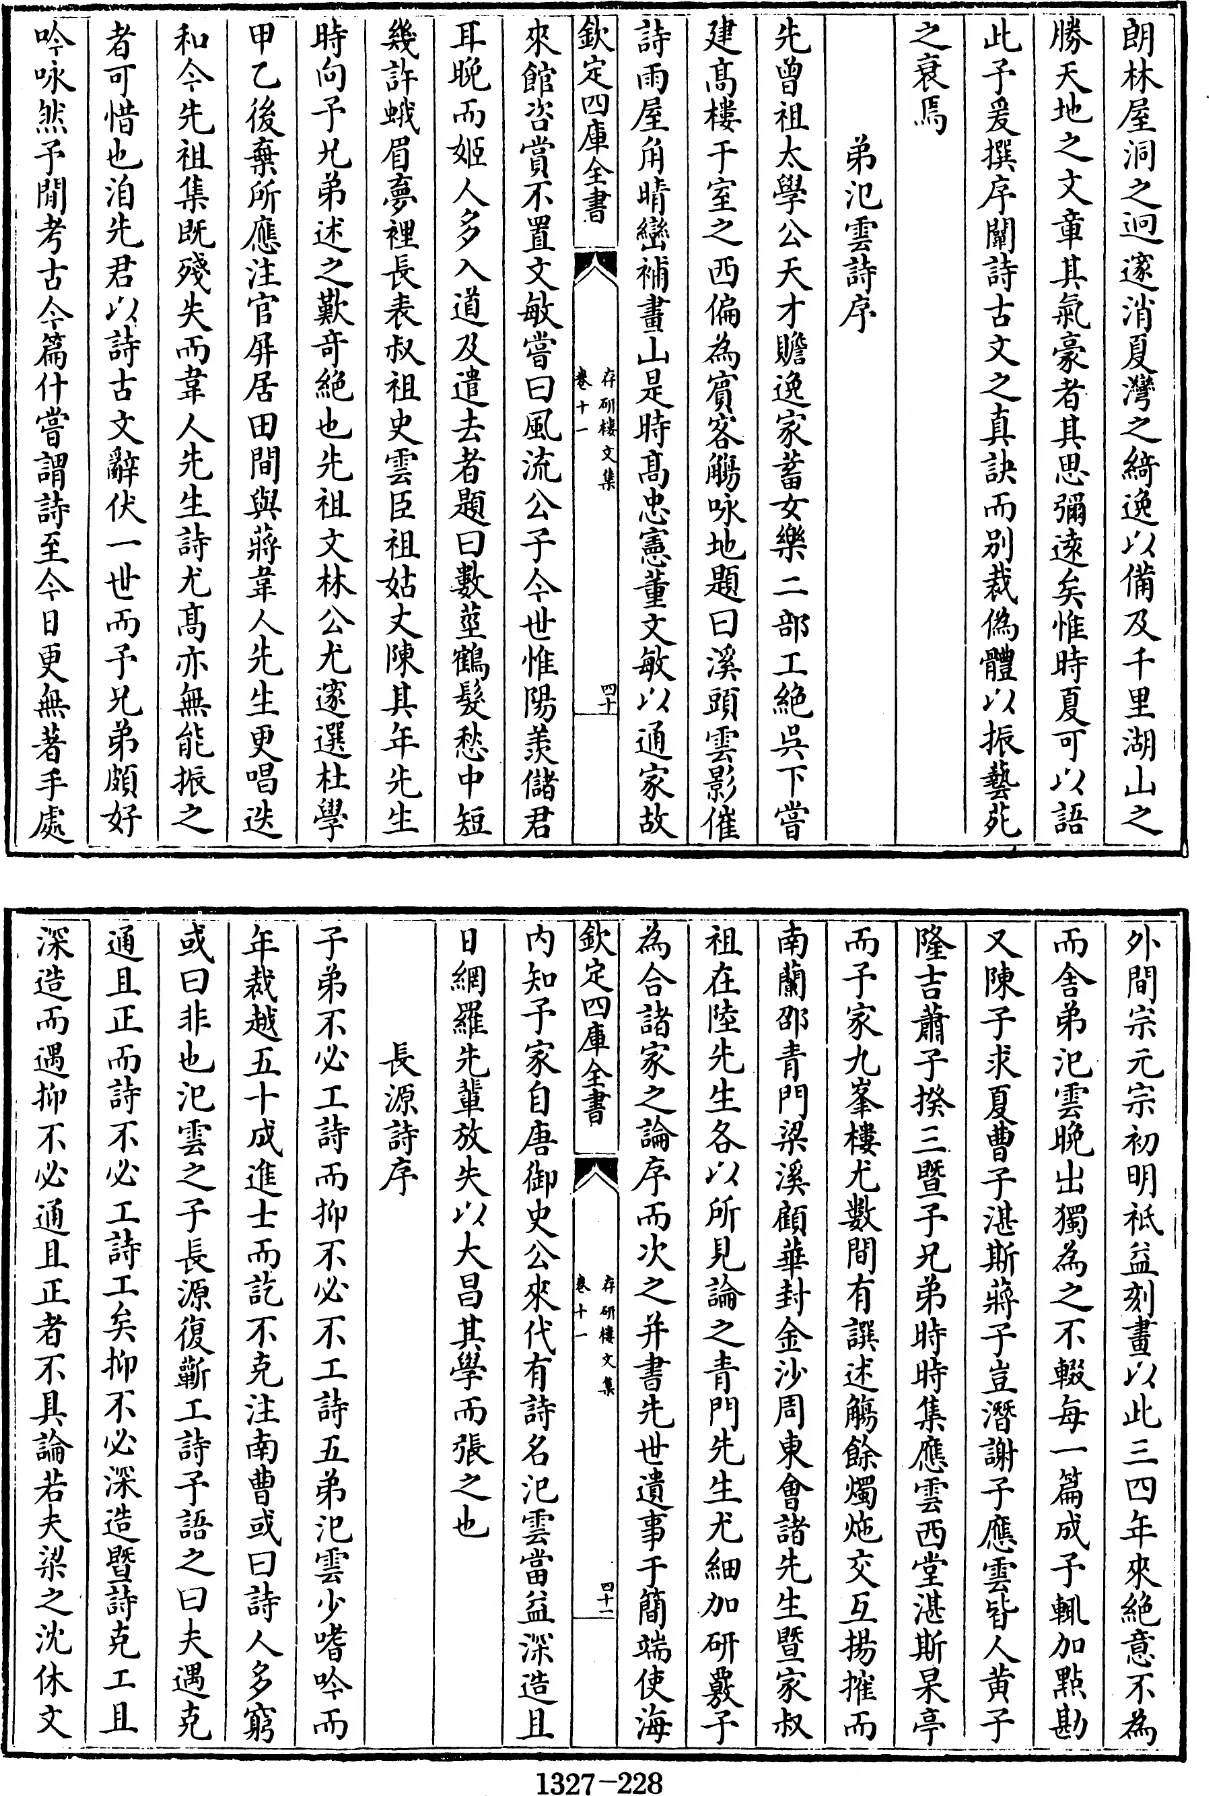 朗林屋洞之迥邃消夏灣之綺逸以備及千里湖山之
勝天地之文章其氣豪者其思彌遠矣惟時夏可以語
此予爰撰序闡詩古文之真訣而别裁偽體以振藝苑
之衰焉
弟汜雲詩序
先曽祖太學公天才贍逸家蓄女樂二部工絶吳下嘗
建髙樓于室之西偏為賓客觴咏地題曰溪頭雲影催
詩雨屋角晴巒補畫山是時髙忠憲董文敏以通家故
欽定四庫全書
存研樓文集
卷十一
四十
來館咨賞不置文敏嘗曰風流公子今世惟陽羡儲君
耳晚而姬人多入道及遣去者題曰數莖鶴髮愁中短
幾許蛾眉夢裡長表叔祖史雲臣祖姑丈陳其年先生
時向予兄弟述之歎竒絶也先祖文林公尤邃選杜學
甲乙後棄所應注官屏居田間與蔣韋人先生更唱迭
和今先祖集既殘失而韋人先生詩尤髙亦無能振之
者可惜也洎先君以詩古文辭伏一世而予兄弟頗好
吟咏然予閒考古今篇什嘗謂詩至今日更無著手處
外間宗元宗初明祗益刻畫以此三四年來絶意不為
而舍弟汜雲晚出獨為之不輟每一篇成予輒加點勘
又陳子求夏曹子湛斯蔣子豈潛謝子應雲皆人黄子
隆吉蕭子揆三暨予兄弟時時集應雲西堂湛斯杲亭
而予家九峯樓尤數間有譔述觴餘燭炧交互揚搉而
南蘭邵青門梁溪顧華封金沙周東㑹諸先生暨家叔
祖在陸先生各以所見論之青門先生尤細加研覈予
為合諸家之論序而次之并書先世遺事于簡端使海
欽定四庫全書
存研樓文集
卷十一
四十一
内知予家自唐御史公來代有詩名汜雲當益深造且
日網羅先輩放失以大昌其學而張之也
長源詩序
子弟不必工詩而抑不必不工詩五弟汜雲少嗜吟而
年裁越五十成進士而訖不克注南曹或曰詩人多窮
或曰非也汜雲之子長源復蘄工詩予語之曰夫遇克
通且正而詩不必工詩工矣抑不必深造暨詩克工且
深造而遇抑不必通且正者不具論若夫梁之沈休文
1327-228